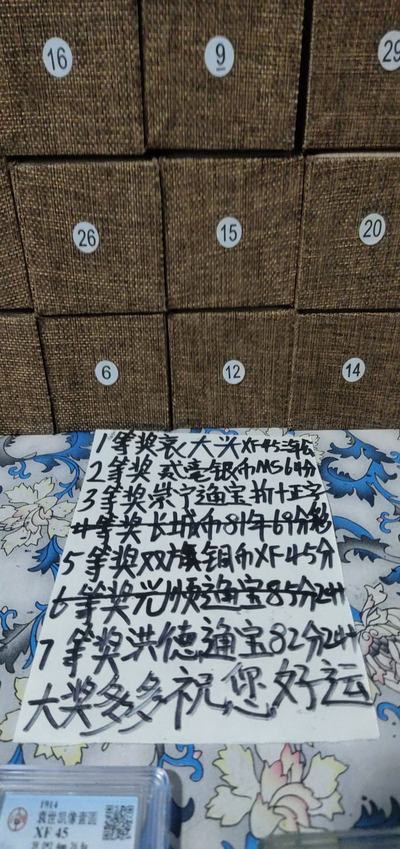 16
9
29
26
15
20
6
12
14
1等奖袁大头XF45三年
2等奖 武竜银币MS64分
3等奖崇宁通宝折十正字
4等奖长城币81年69分彩
5等奖双旗铜币XF45分
6等奖光顺通宝85分24H
7等奖洪德通宝82分24H
大奖多多祝您好运
1914
袁世凯像壹圆
XF 45